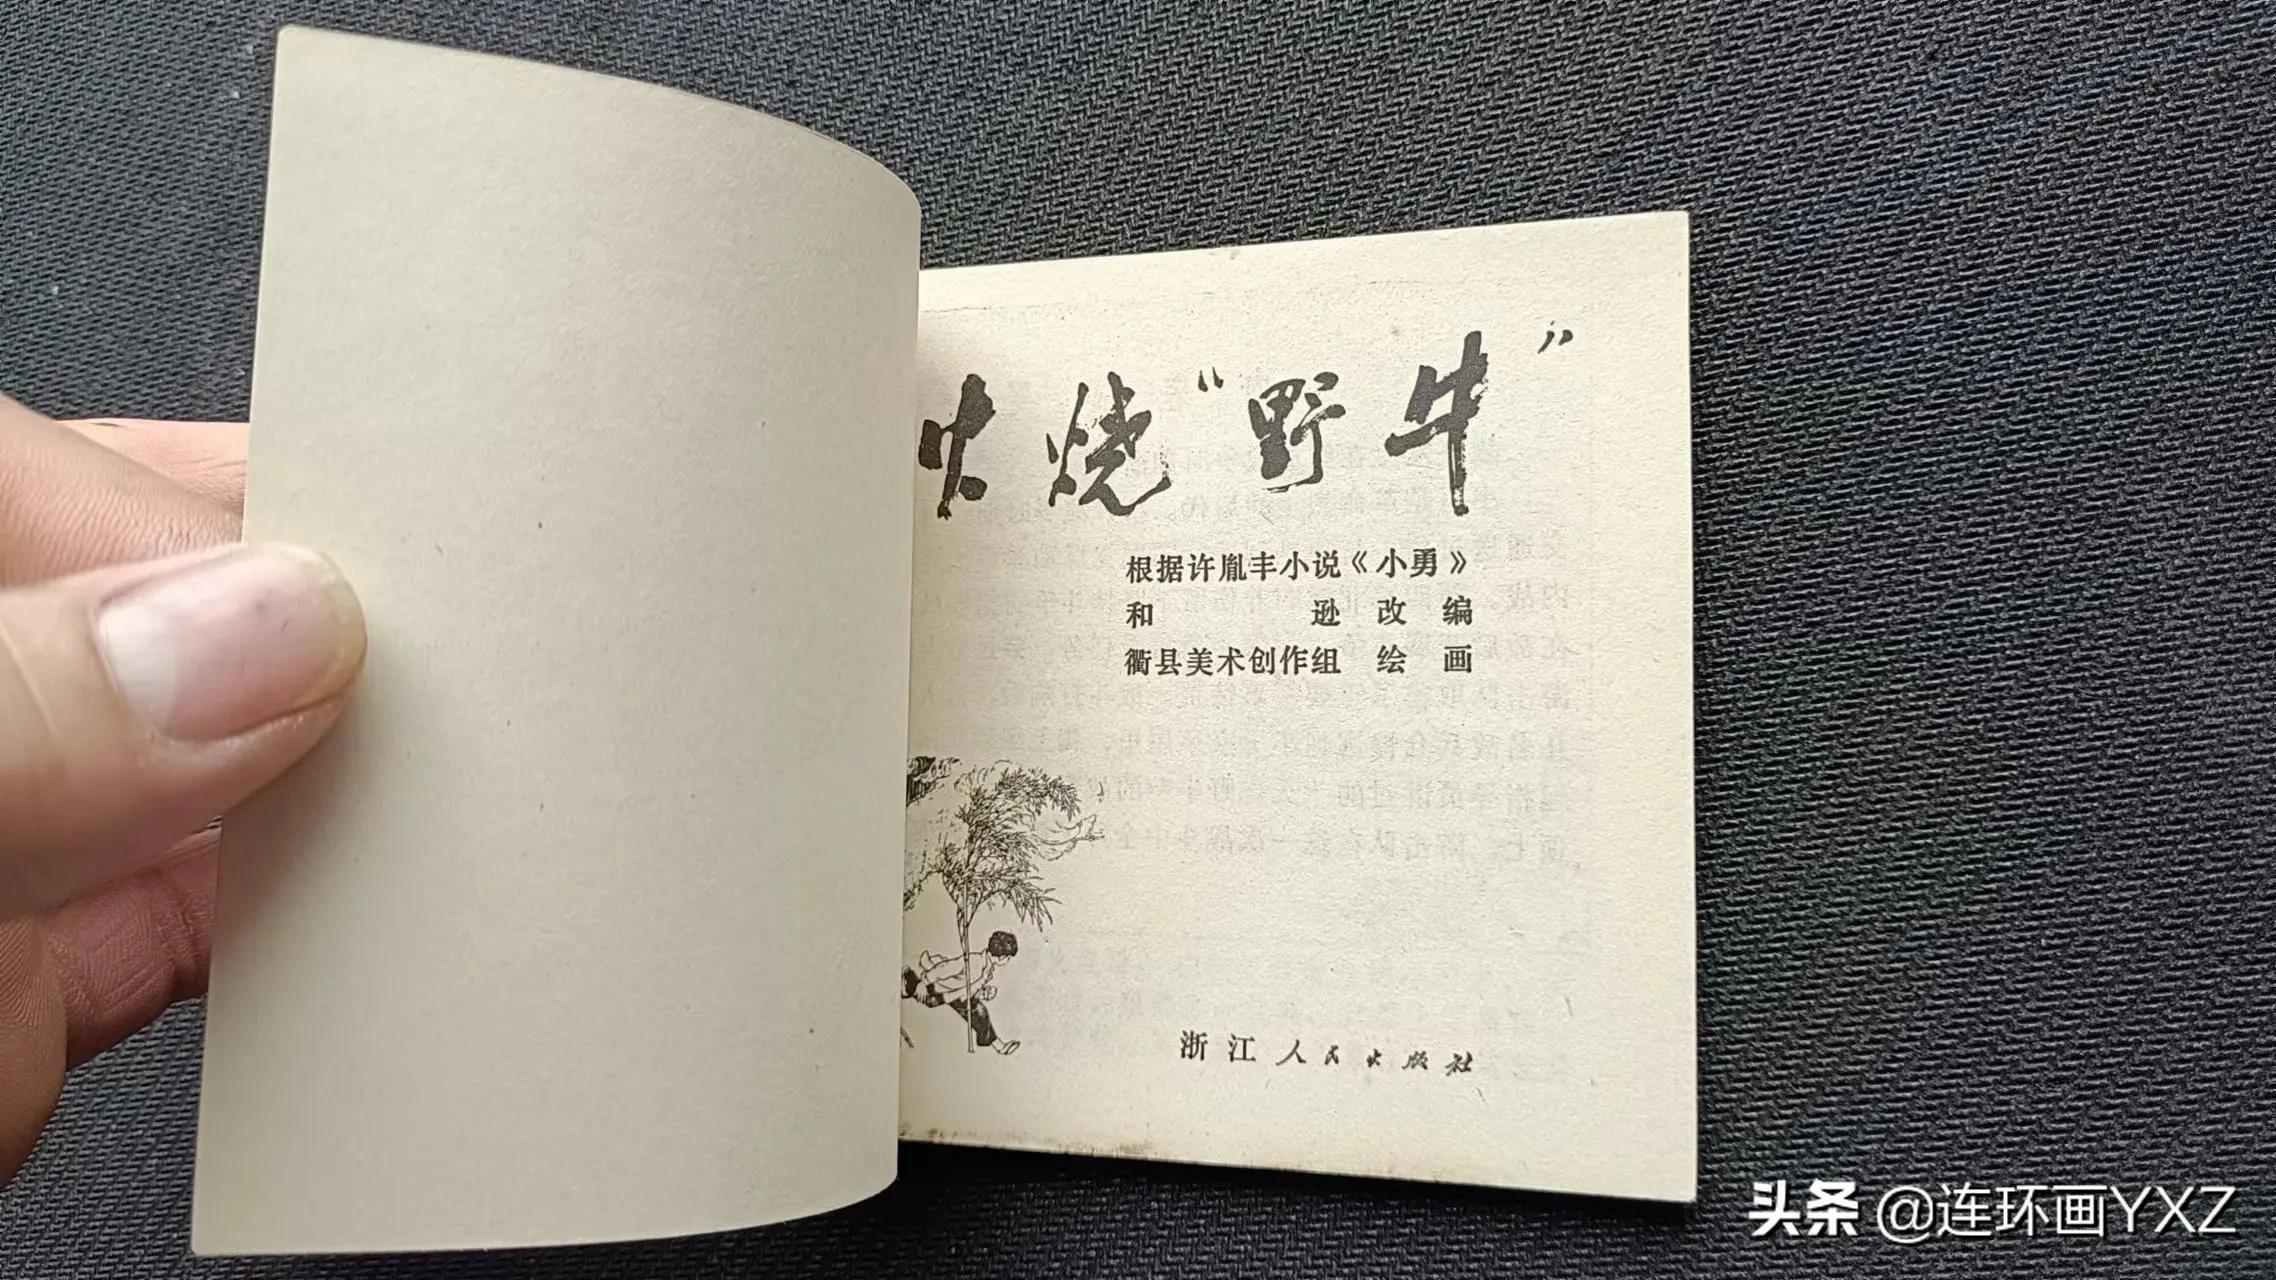 火烧“野牛”
根据许胤丰小说《小勇》
和 逊 改 编
衢县美术创作组 绘 画
浙江人民出版社
头条 @连环画YXZ